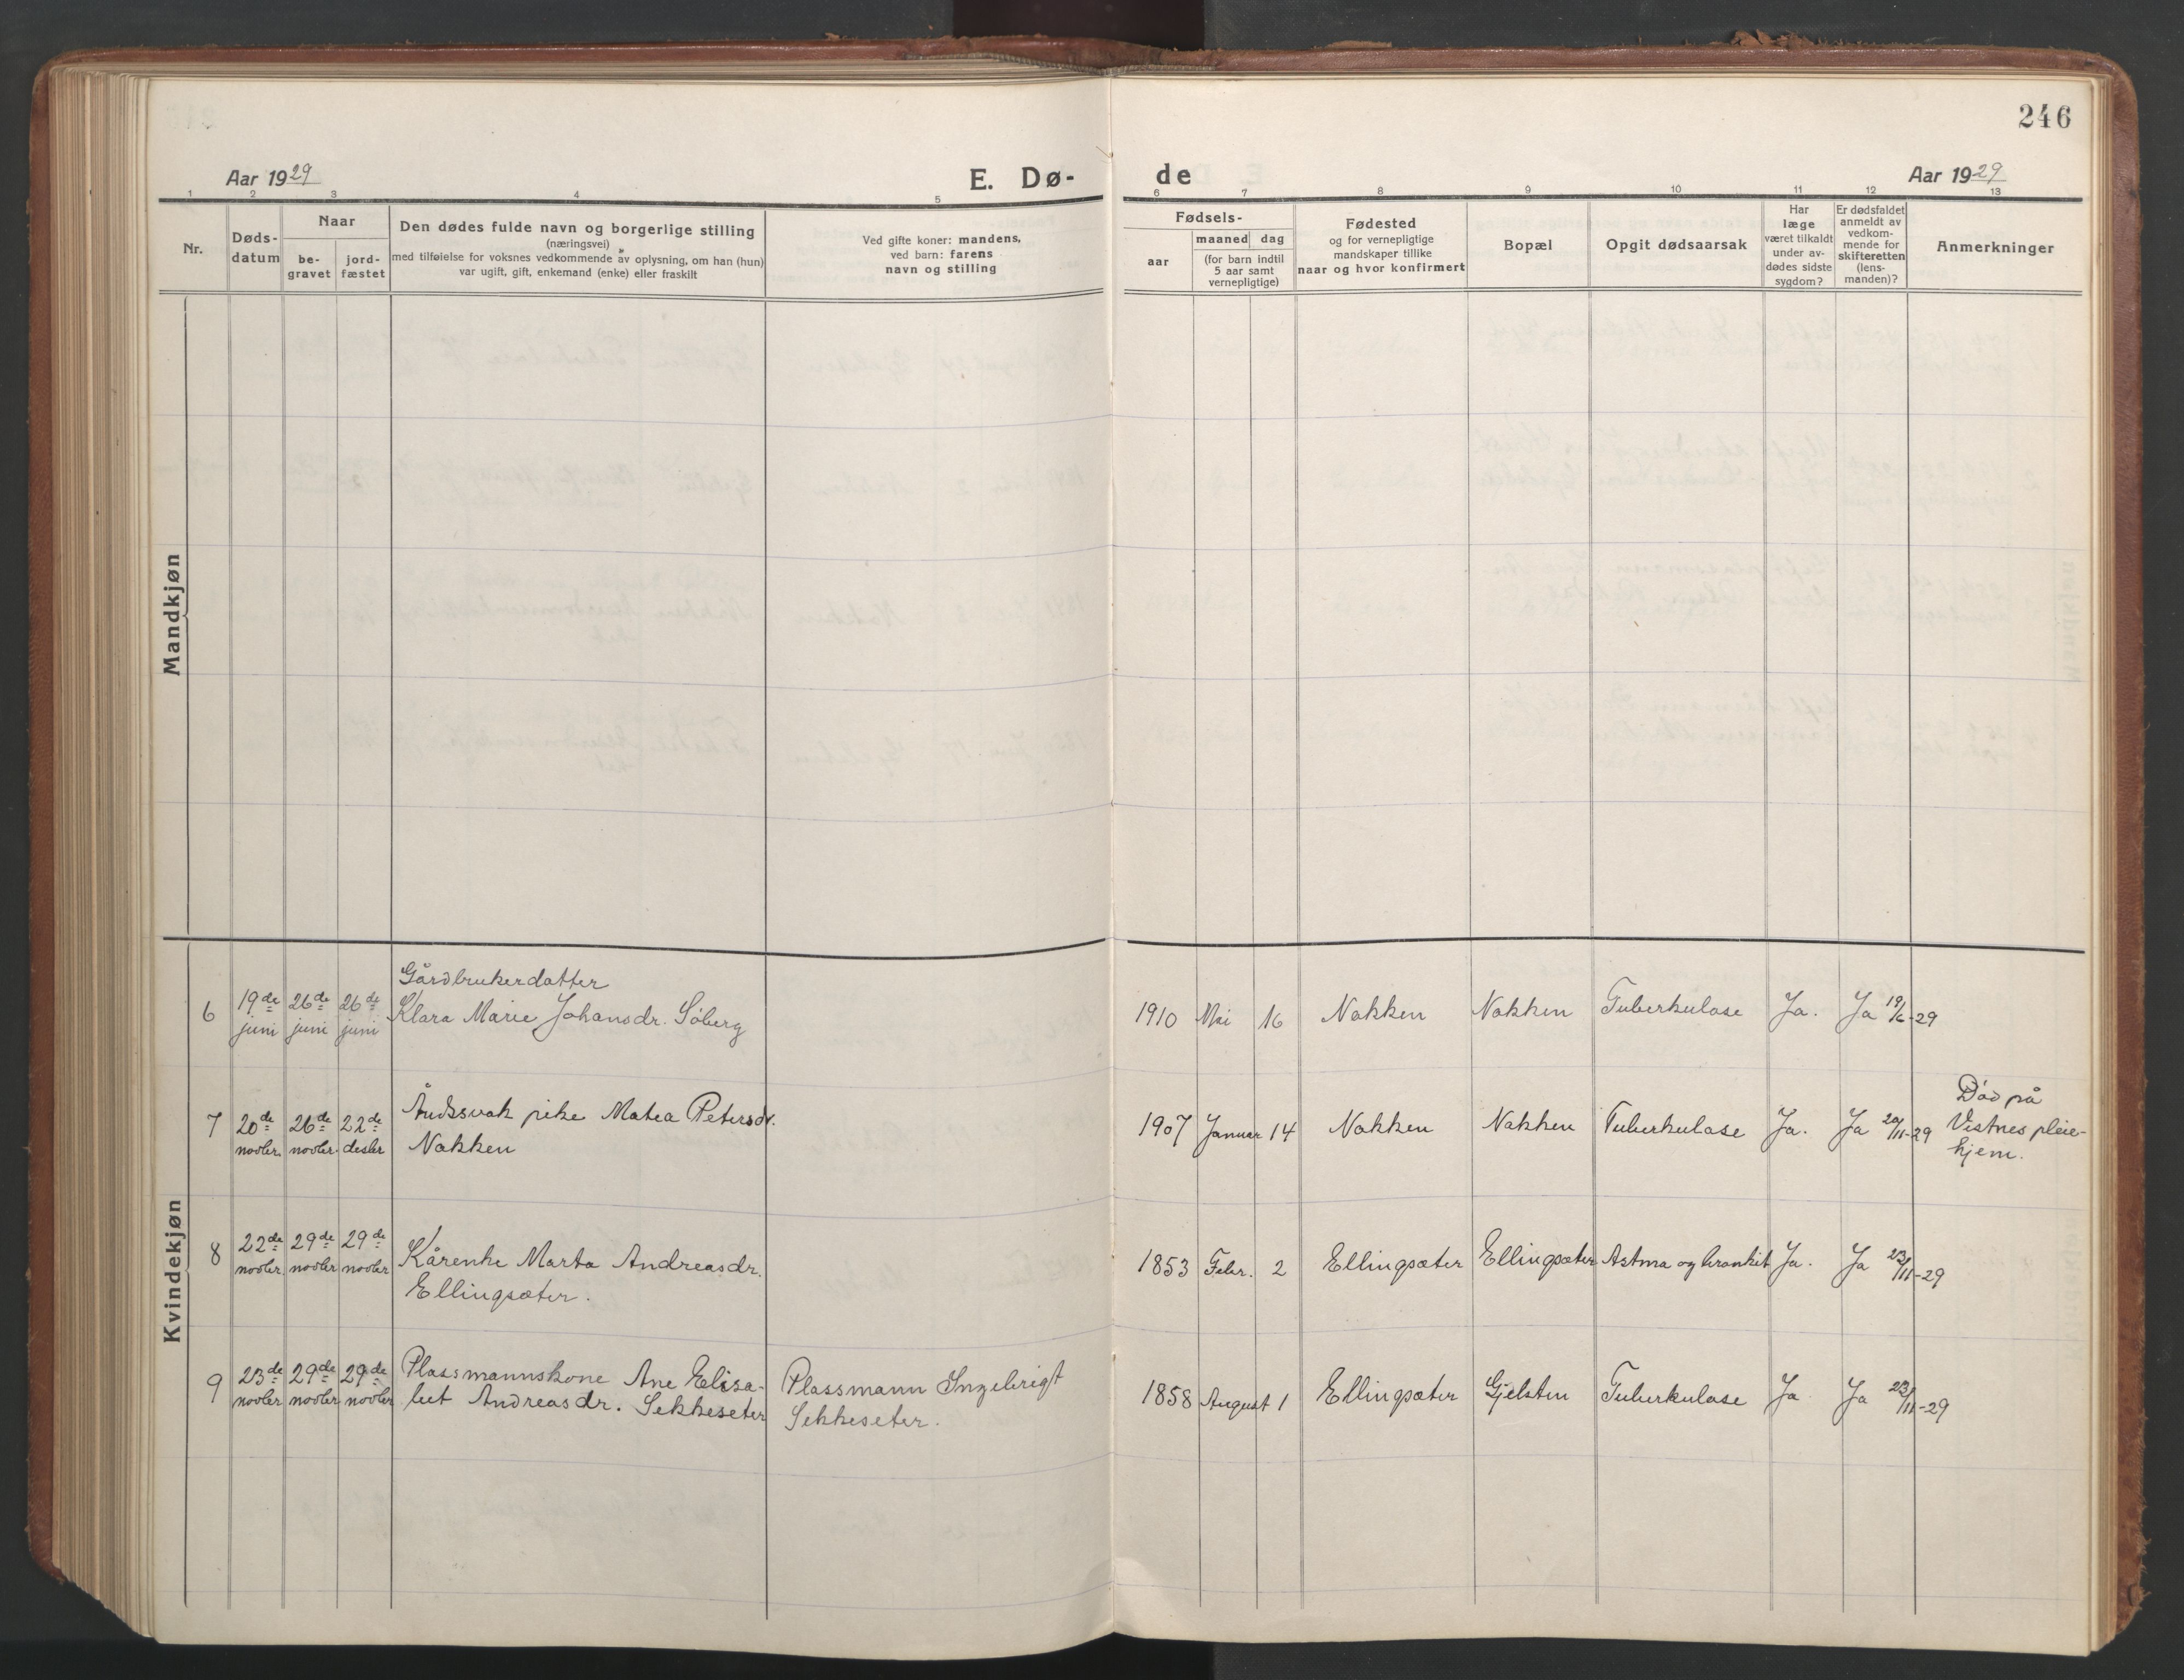 246
Aar 1929
E. Dø-
de
Aar 1929
1 2 3 4 5 6 7 8 9 10 11 12 13
Nr.
Døds-
datum
Naar
be-
gravet
jord-
fæstet
Den dødes fulde navn og borgerlige stilling
(næringsvei)
med tilføielse for voksnes vedkommende av oplysning, om han (hun)
var ugift, gift, enkemand (enke) eller fraskilt
Ved gifte koner: mandens,
ved barn: farens
navn og stilling
Fødsels-
aar
maaned dag
(for barn indtil
5 aar samt
vernepligtige)
Fødested
og for vernepligtige
mandskaper tillike
naar og hvor konfirmert
Bopæl
Opgit dødsaarsak
Har
læge
været tilkaldt
under av-
dødes sidste
sygdom?
Er dødsfaldet
anmeldt av
vedkom-
mende for
skifteretten
(lens-
manden)?
Anmerkninger
Mandkjøn
Kvindekjøn
6 19de juni 26de juni 26de juni Gårdbrukerdatter
Klara Marie Johansdr. Söberg 1910 Mai 16 Nakken Nakken Tuberkulose Ja. Ja 19/6-29
7 20de novbr. 26de novbr. 22de desbr Åndssvak pike Matea Petersdr.
Nakken 1907 Januar 14 Nakken Nakken Tuberkulose Ja. Ja 20/11-29 Död på
Vestnes pleie-
hjem.
8 22de novbr. 29de novbr 29de novbr Kårenke Marta Andreasdr.
Ellingsæter. 1853 Febr. 2 Ellingsæter Ellingsæter Astma og bronkit Ja. Ja 23/11-29
9 23de novbr 29de novbr 29de novbr Plassmannskone Ane Elisa-
bet Andreasdr. Sekkeseter Plassmann Ingebrigt
Sekkeseter. 1858 August 1 Ellingsæter Gjelsten Tuberkulose Ja Ja 23/11-29